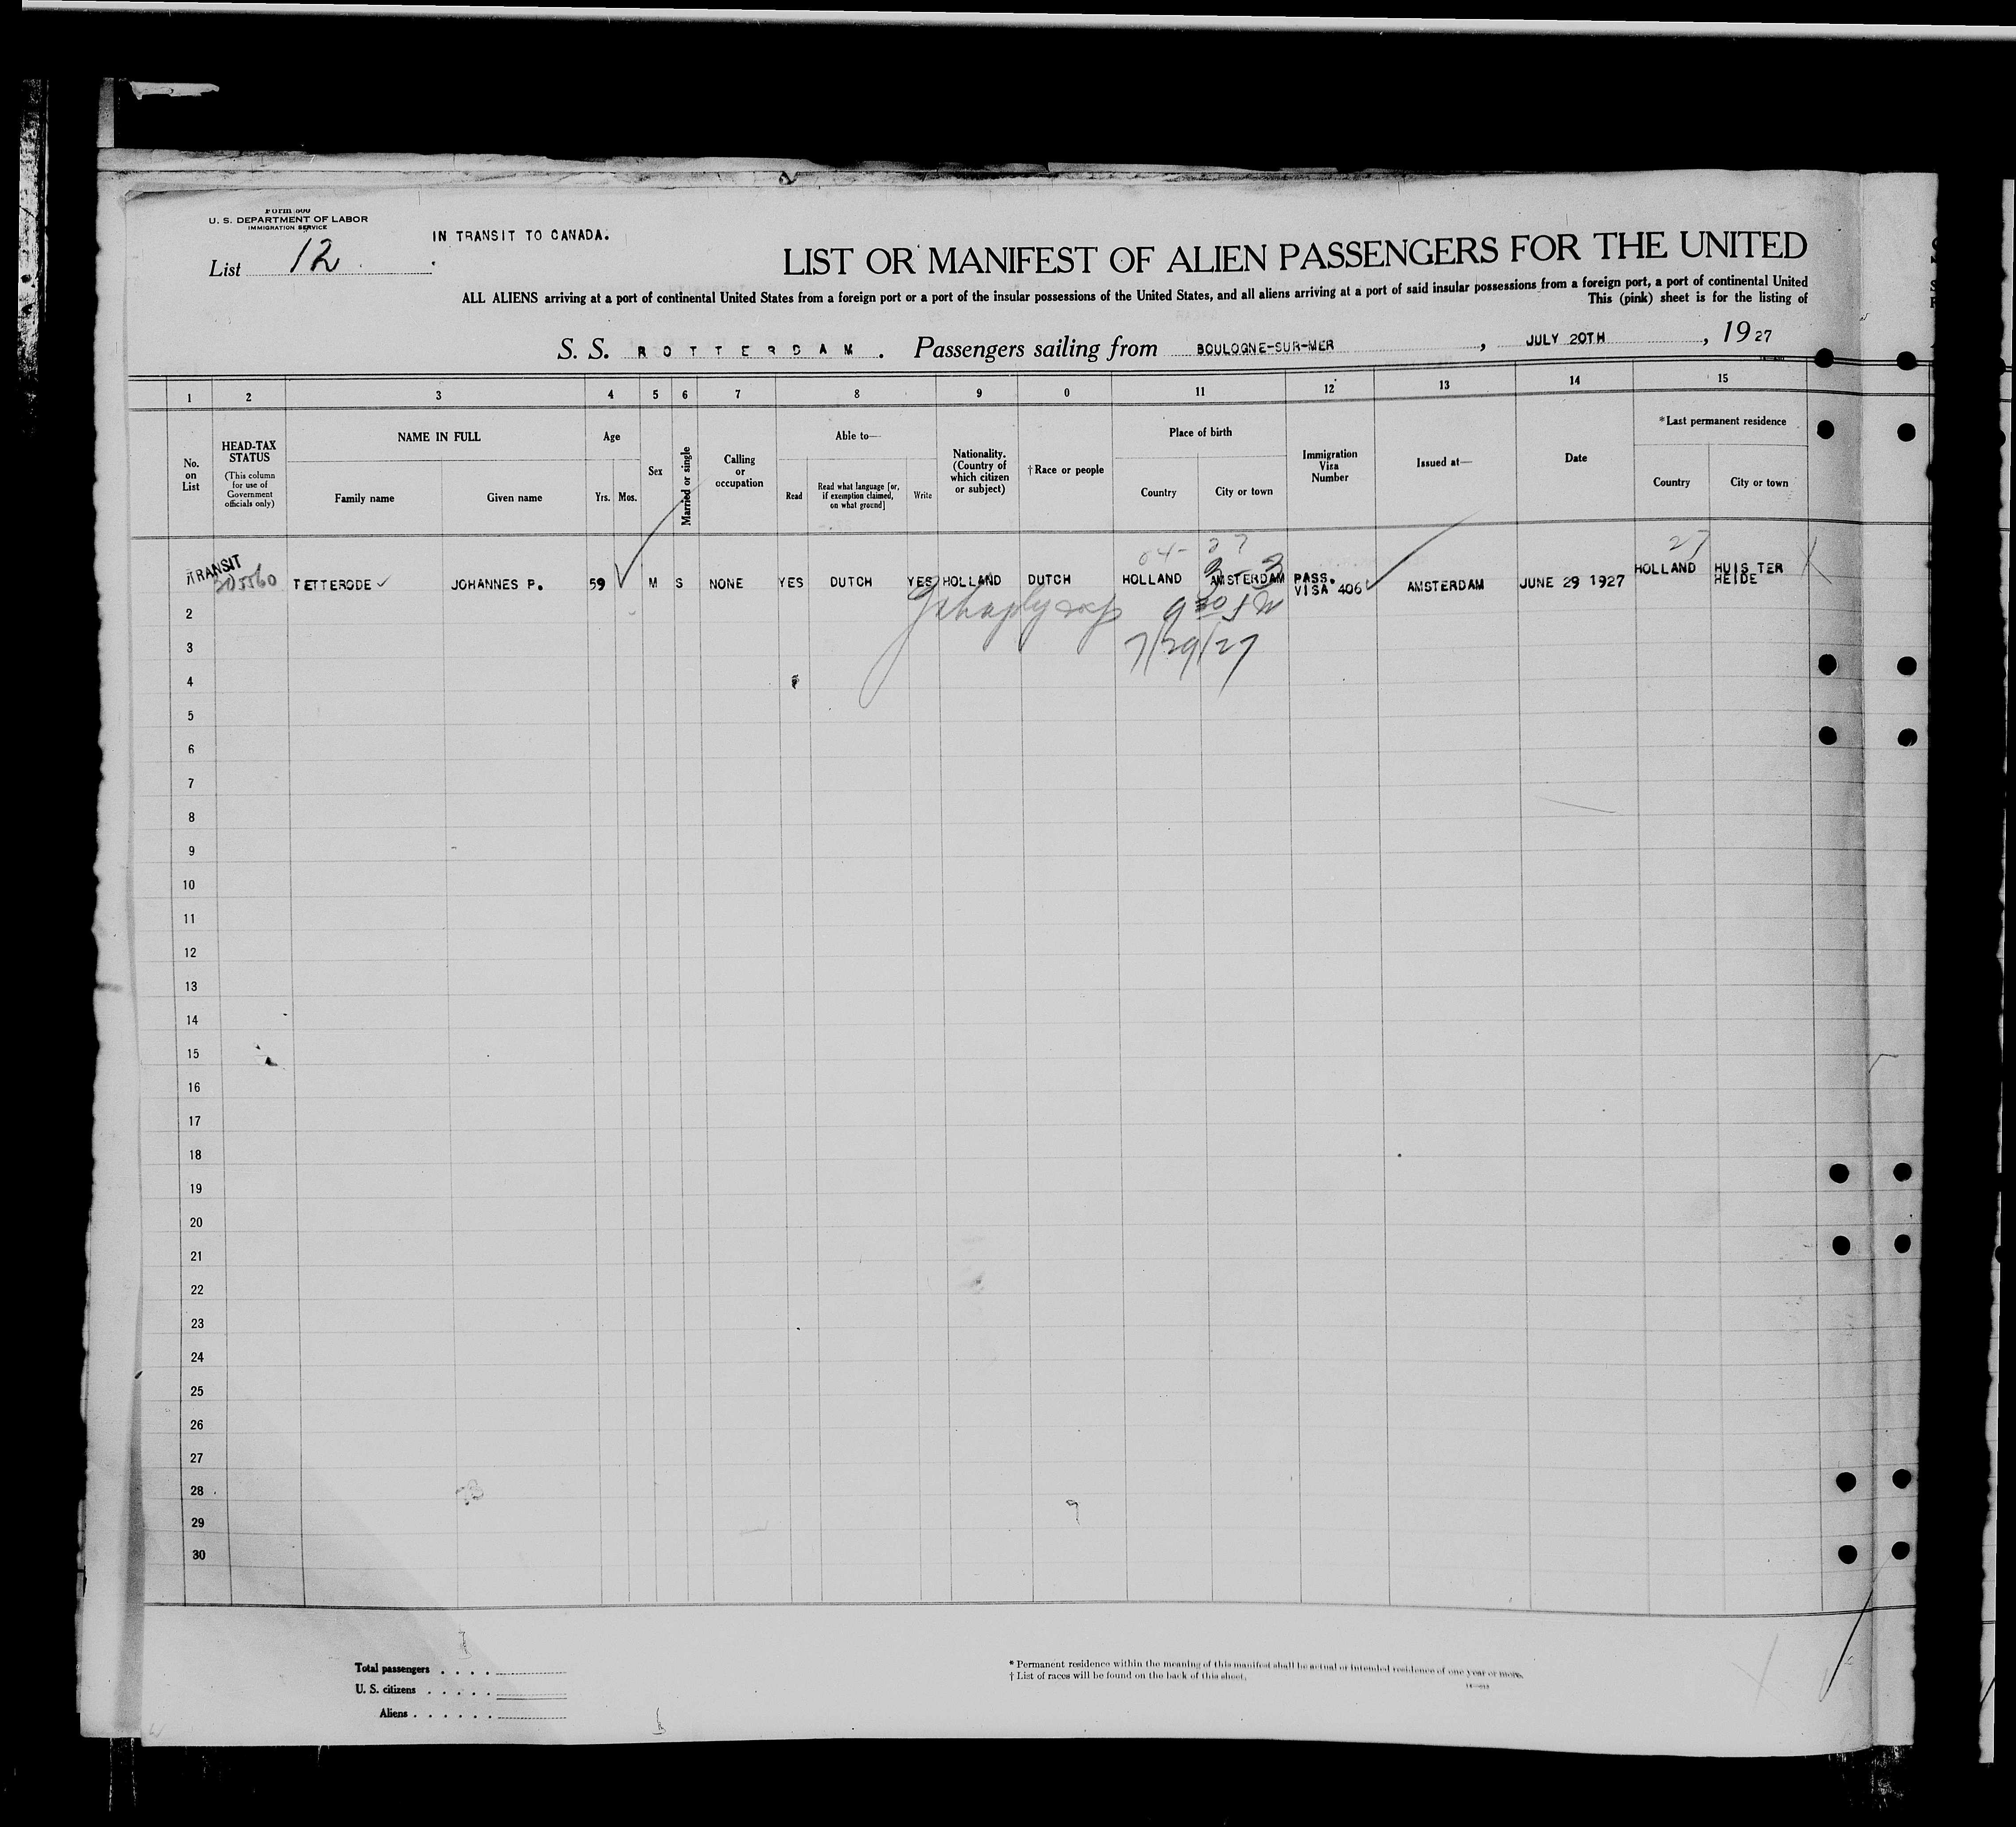 Form 500
U. S. DEPARTMENT OF LABOR
IMMIGRATION SERVICE
List 12
IN TRANSIT TO CANADA.
LIST OR MANIFEST OF ALIEN PASSENGERS FOR THE UNITED
ALL ALIENS arriving at a port of continental United States from a foreign port or a port of the insular possessions of the United States, and all aliens arriving at a port of said insular possessions from a foreign port, a port of continental United
This (pink) sheet is for the listing of
S. S. ROTTERDAM. Passengers sailing from BOULOGNE-SUR-MER, JULY 20TH, 1927
1 2 3 4 5 6 7 8 9 0 11 12 13 14 15
No. on List
HEAD-TAX STATUS
(This column for use of Government officials only)
NAME IN FULL
Family name Given name
Age
Yrs. Mos.
Sex
Married or single
Calling or occupation
Able to—
Read
Read what language [or, if exemption claimed, on what ground]
Write
Nationality. (Country of which citizen or subject)
†Race or people
Place of birth
Country City or town
Immigration Visa Number
Issued at—
Date
*Last permanent residence
Country City or town
04- 27
27
3-3
TRANSIT 305560 TETTERODE JOHANNES P. 59 M S NONE YES DUTCH YES HOLLAND DUTCH HOLLAND AMSTERDAM PASS. VISA 406 AMSTERDAM JUNE 29 1927 HOLLAND HUIS TER HEIDE
2
3 7/29/27
4
5
6
7
8
9
10
11
12
13
14
15
16
17
18
19
20
21
22
23
24
25
26
27
28
29
30
Total passengers . . . .
U. S. citizens . . . . .
Aliens . . . . . .
* Permanent residence within the meaning of this manifest shall be actual or intended residence of one year or more.
† List of races will be found on the back of this sheet.